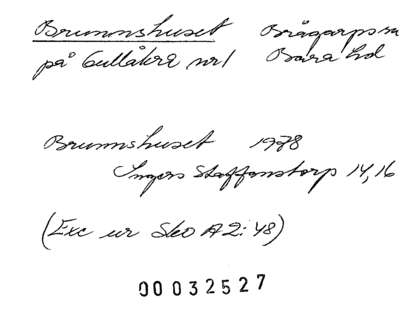 Brunnshuset Brågarps sn
på Gullåkra nr 1 Bara hd
Brunnshuset 1978
Ingers Staffanstorp 14, 16
(Exc ur Sko A 2: 48)
00032527